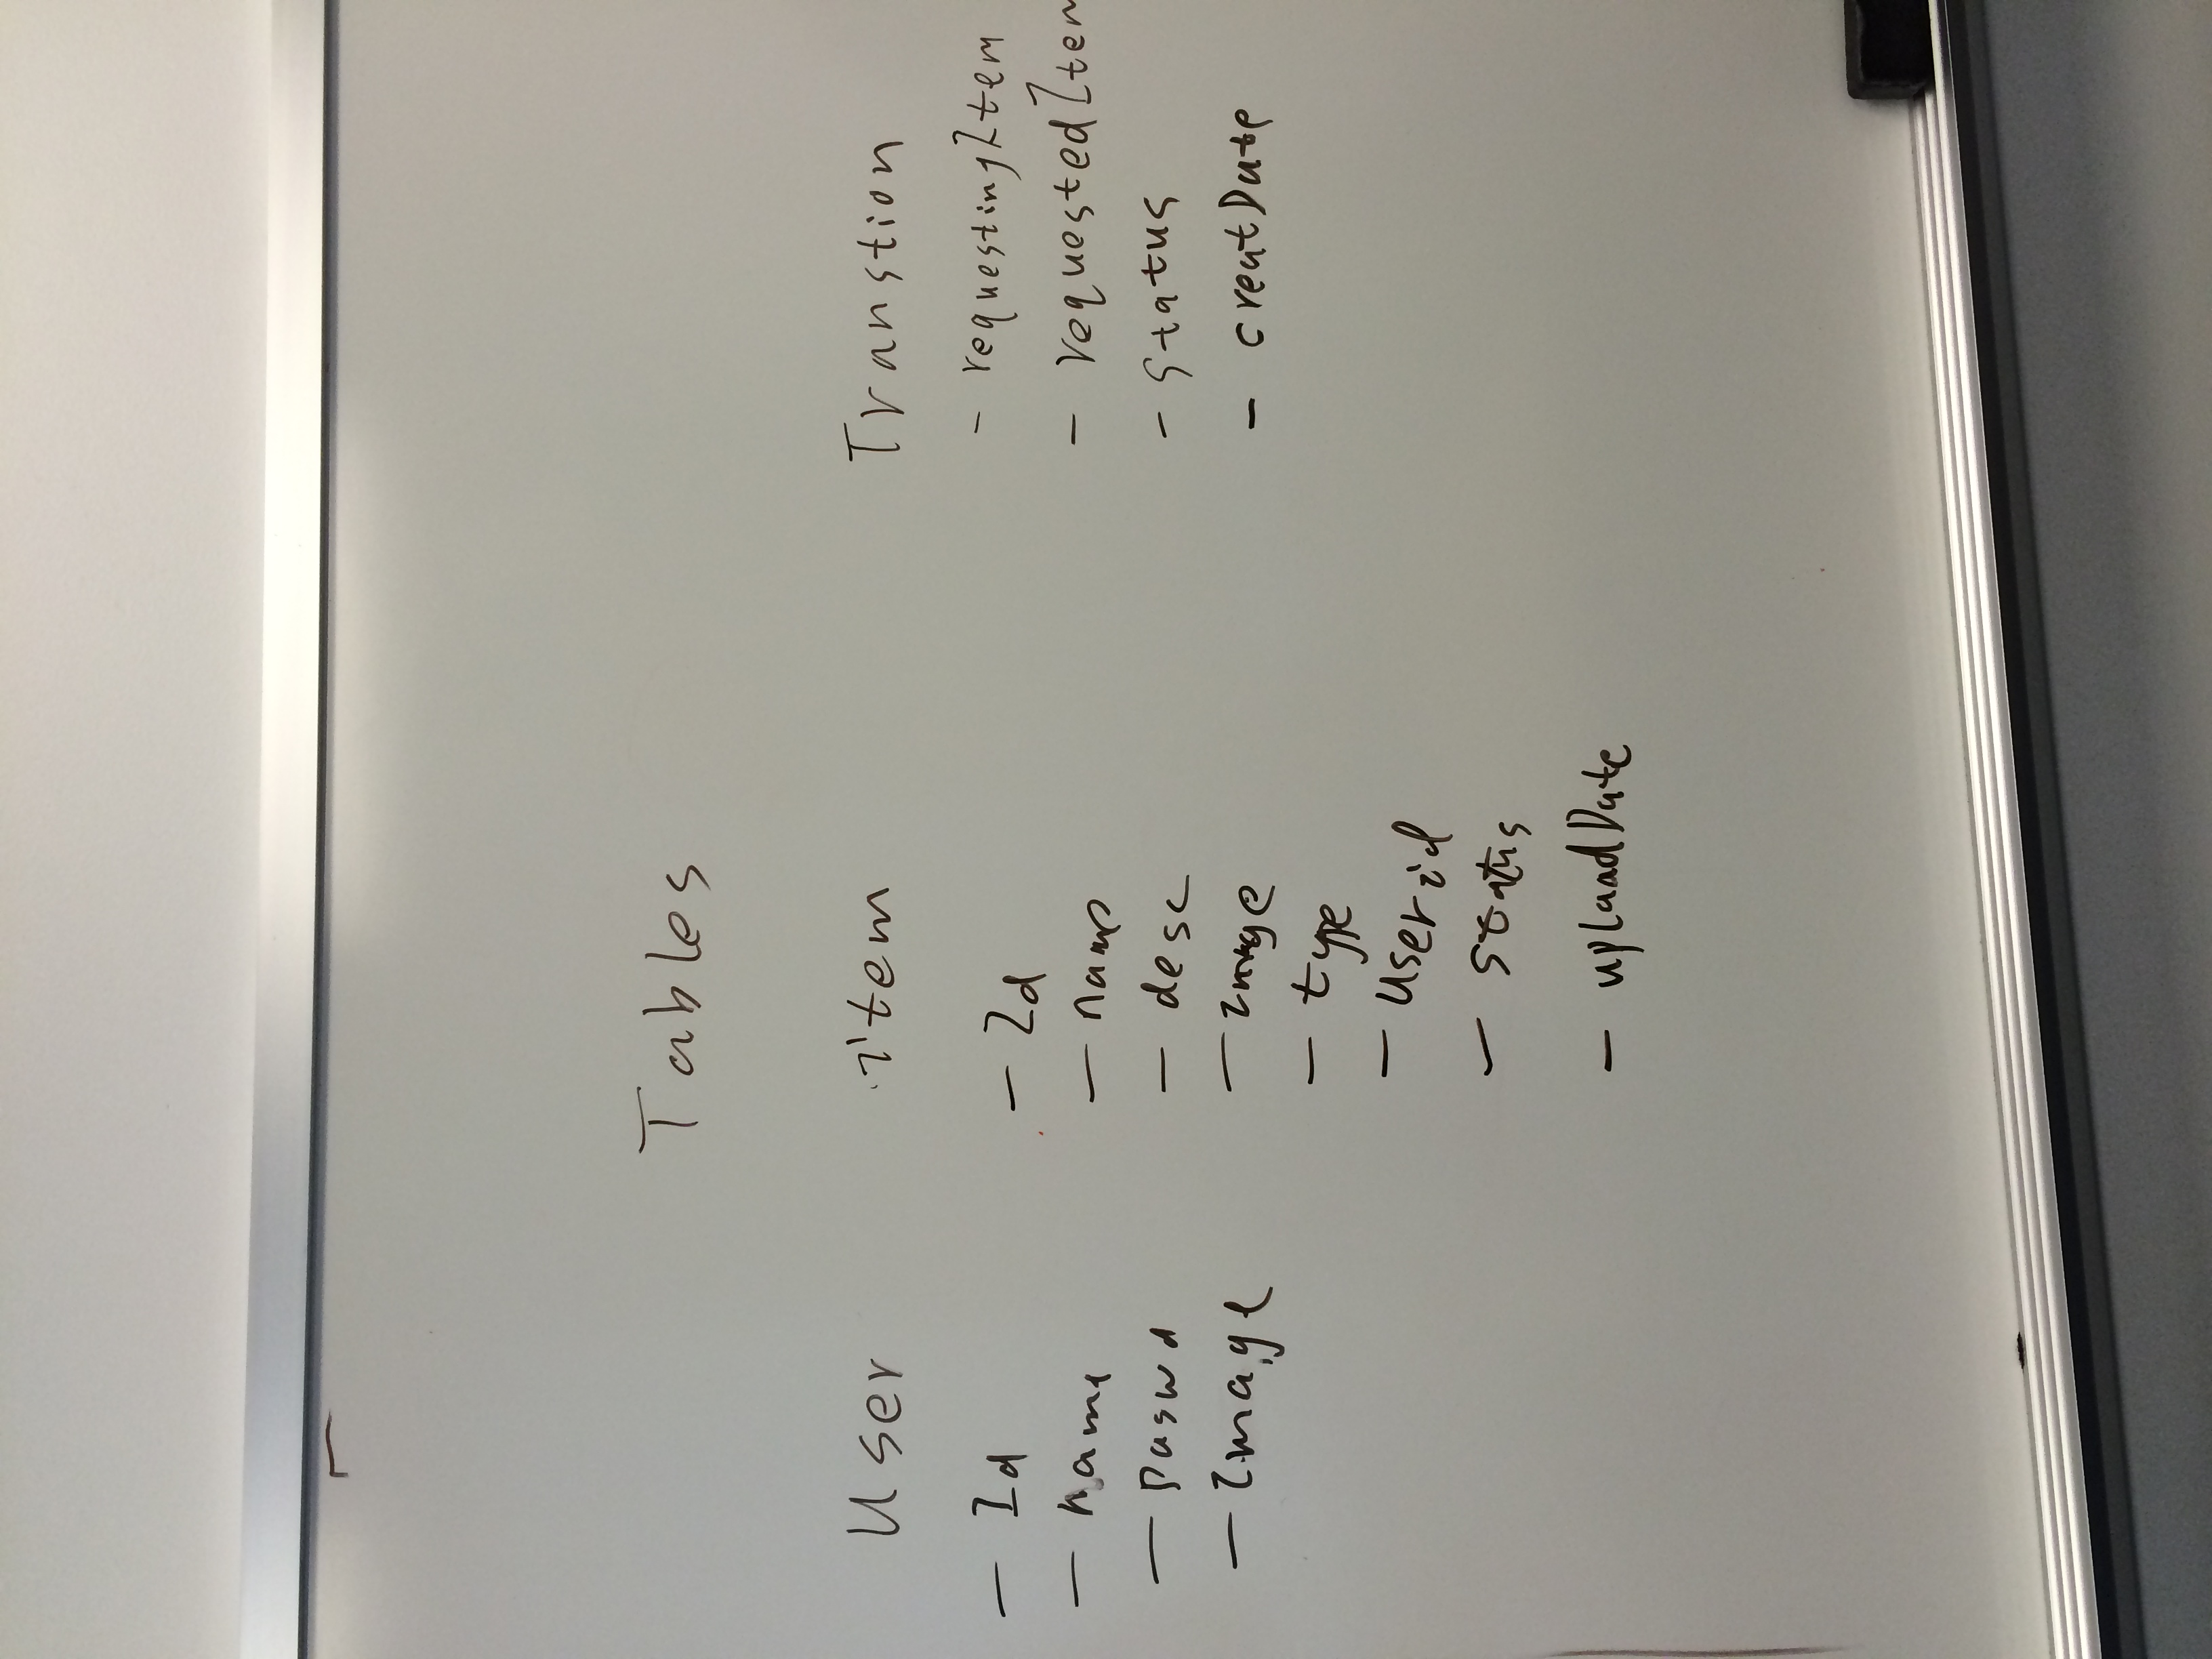 Tables
User
- Id
- name
- paswd
- Image
item
- Id
- name
- desc
- Image
- type
- userid
- status
- uploadDate
Transtion
- requestingItem
- requestedItem
- status
- creatDate